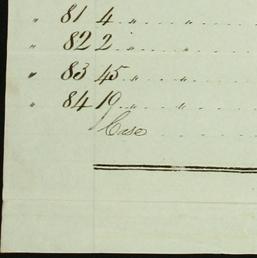 " 81 4 " "
" 82 2 " "
" 83 45 " "
" 84 19 " "